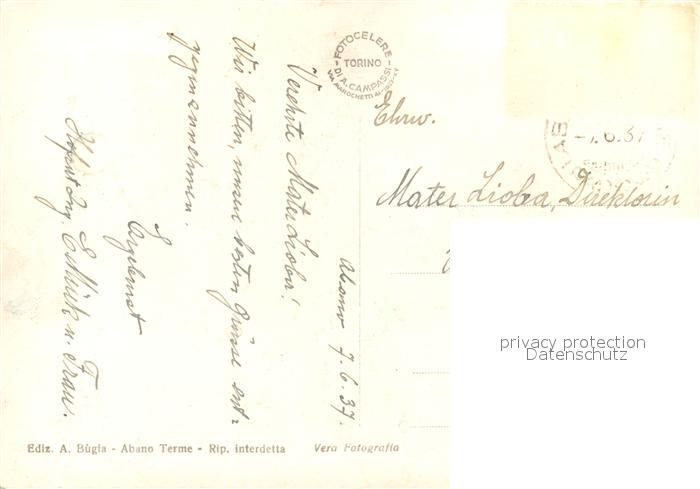 FOTOCELERE
TORINO
DI A. CAMPASSI
VIA MAROCHETTI
-7.6.37
Ehrw.
Mater Lioba, Direktorin
Abano 7.6.37.
Verehrte Mater Lioba!
Wir bitten, unsere besten Grüsse ent-
gegenzunehmen.
Ergebenst
Ing. u. Frau.
privacy protection
Datenschutz
Ediz. A. Bùgia - Abano Terme - Rip. interdetta Vera Fotografia